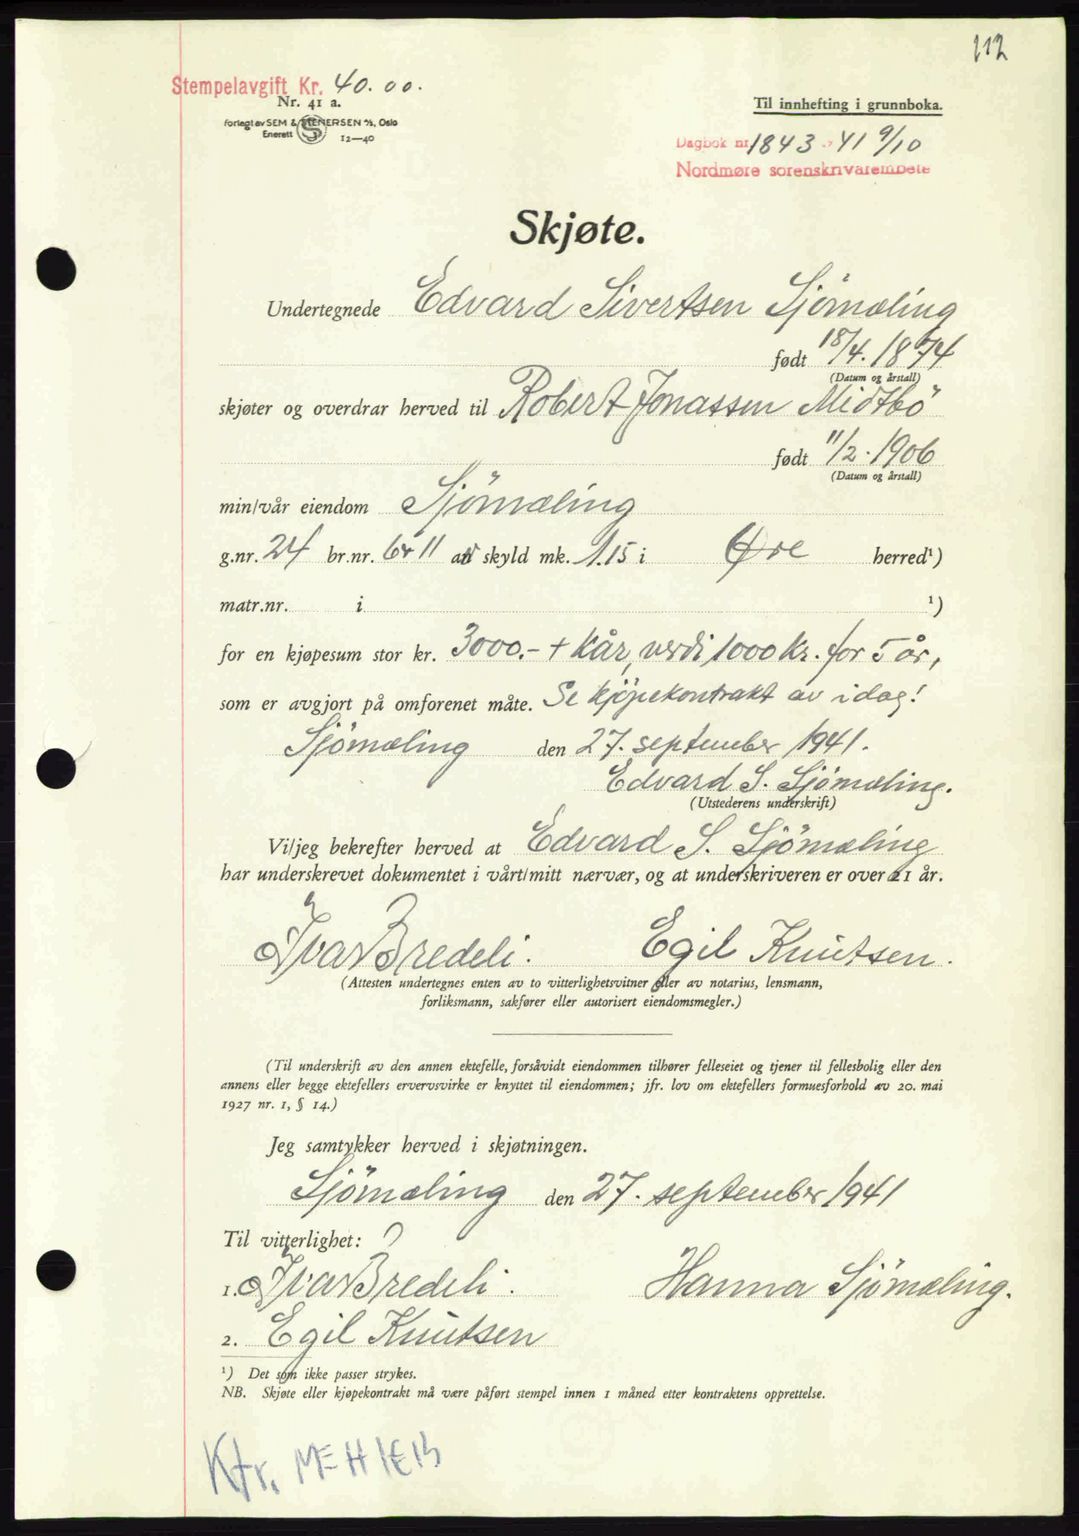 112
Stempelavgift Kr. 40.00.
Nr. 41 a.
Forlagt av SEM & STENERSEN A/S, Oslo
Enerett
12—40
Til innhefting i grunnboka.
Dagbok nr. 1843 - 41 9/10
Nordmøre sorenskrivarembete
Skjøte.
Undertegnede Edvard Sivertsen Sjömæling
født 18/4. 1874
(Datum og årstall)
skjøter og overdrar herved til Robert Jonassen Midtbö
født 11/2. 1906
(Datum og årstall)
min/vår eiendom Sjömæling
g.nr. 24 br.nr. 6 11 av skyld mk. 1.15 i Øre herred¹)
matr.nr. i ¹)
for en kjøpesum stor kr. 3000.- + Kår, verdi 1000 Kr. for 5 år,
som er avgjort på omforenet måte. Se kjöpekontrakt av idag!
Sjömæling den 27. september 1941.
Edvard S. Sjömæling.
(Utstederens underskrift)
Vi/jeg bekrefter herved at Edvard S. Sjömæling
har underskrevet dokumentet i vårt/mitt nærvær, og at underskriveren er over 21 år.
Ivar Bredeli. Egil Knutsen.
(Attesten undertegnes enten av to vitterlighetsvitner eller av notarius, lensmann,
forliksmann, sakfører eller autorisert eiendomsmegler.)
(Til underskrift av den annen ektefelle, forsåvidt eiendommen tilhører felleseiet og tjener til fellesbolig eller den
annens eller begge ektefellers ervervsvirke er knyttet til eiendommen; jfr. lov om ektefellers formuesforhold av 20. mai
1927 nr. 1, § 14.)
Jeg samtykker herved i skjøtningen.
Sjömæling den 27. september 1941
Til vitterlighet:
1. Ivar Bredeli. Hanna Sjömæling.
2. Egil Knutsen
¹) Det som ikke passer strykes.
NB. Skjøte eller kjøpekontrakt må være påført stempel innen 1 måned etter kontraktens opprettelse.
Ktr.